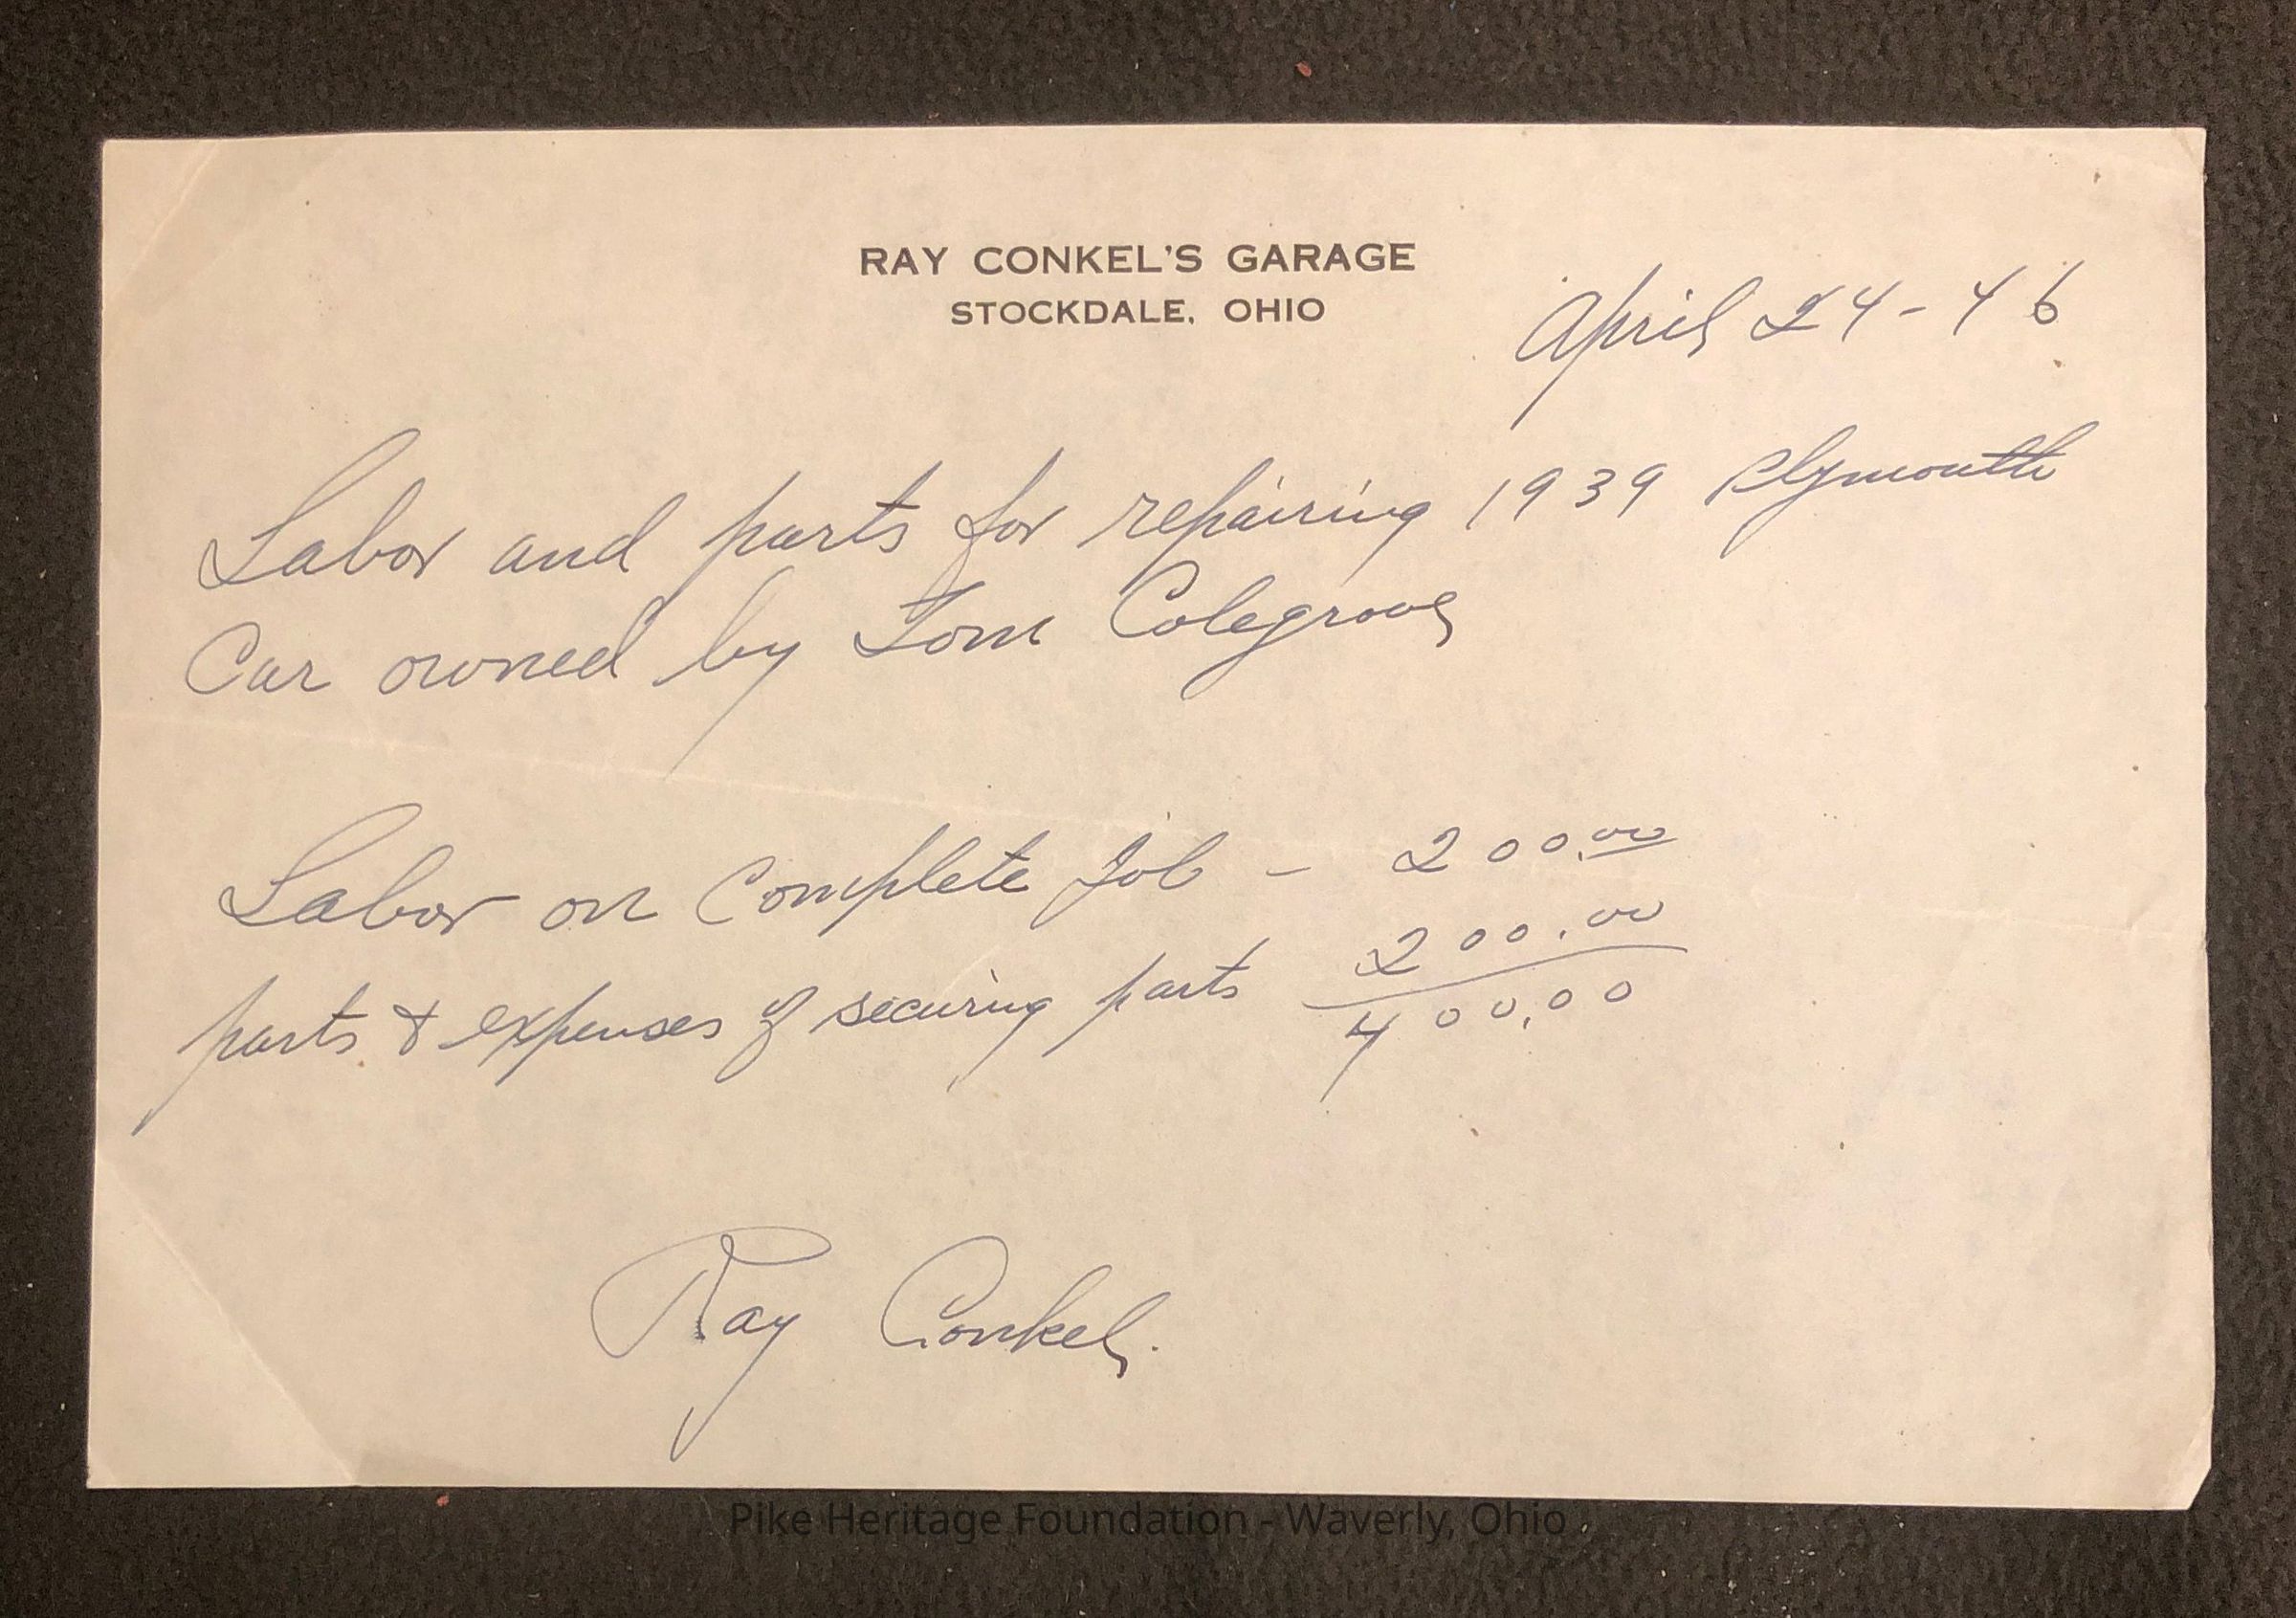 RAY CONKEL'S GARAGE
STOCKDALE, OHIO
April 24-46
Labor and parts for repairing 1939 Plymouth
Car owned by Tom Colegrove
Labor on Complete Job - 200.00
parts & expenses of securing parts 200.00
400.00
Ray Conkel.
Pike Heritage Foundation - Waverly, Ohio